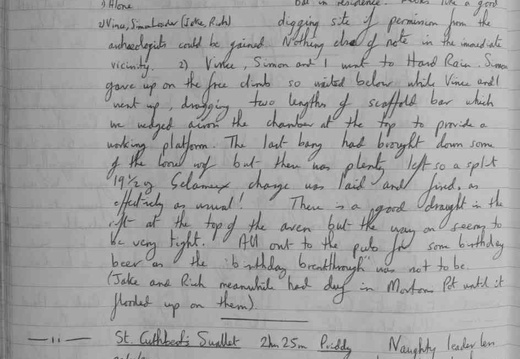 1) Alone but in residence. Looks like a good
2) Vince, Simon (Jake, Rich) digging site if permission from the
archaeologists could be gained. Nothing else of note in the immediate
vicinity. 2) Vince, Simon and I went to Hard Rain. Simon
gave up on the free climb so waited below while Vince and I
went up, dragging two lengths of scaffold bar which
we wedged across the chamber at the top to provide a
working platform. The last bang had brought down some
of the loose roof but there was plenty left so a split
19½oz Gelamex charge was laid and fired, as
effectively as usual! There is a good draught in the
rift at the top of the aven but the way on seems to
be very tight. All out to the pub for some birthday
beer as the "birthday breakthrough" was not to be.
(Jake and Rich meanwhile had dug in Mortons Pot until it
flooded up on them).
— 11 — St. Cuthbert's Swallet 2hr 25m Priddy Naughty leader Len